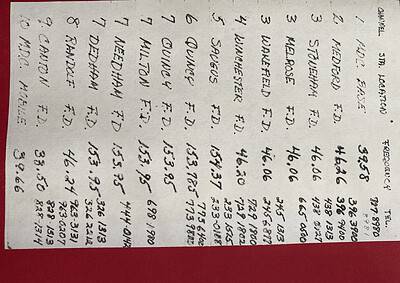 CHANNEL STA. LOCATION FREQUENCY TEL.
1 MDC BASE 39.58 727 8980
8981
2 MEDFORD F.D. 46.26 396 3900
396 9400
3 STONEHAM F.D. 46.06 438 1313
438 0127
3 MELROSE F.D. 46.06 665 0500
3 WAKEFIELD F.D. 46.06 245 1313
245 6877
4 WINCHESTER F.D. 46.30 729 1900
729 1802
5 SAUGUS F.D. 154.37 233 1525
233 0188
6 QUINCY F.D. 153.785 773 6400
773 9882
7 QUINCY F.D. 153.95
7 MILTON F.D. 153.95 698 1910
7 NEEDHAM F.D. 153.95 444-0142
7 DEDHAM F.D. 153.95 326 1313
326 2212
8 RANDOLF F.D. 46.24 963.3131
963.0207
9 CANTON F.D. 33.50 828 1513
828 1314
10 MDC MOBILE 39.66